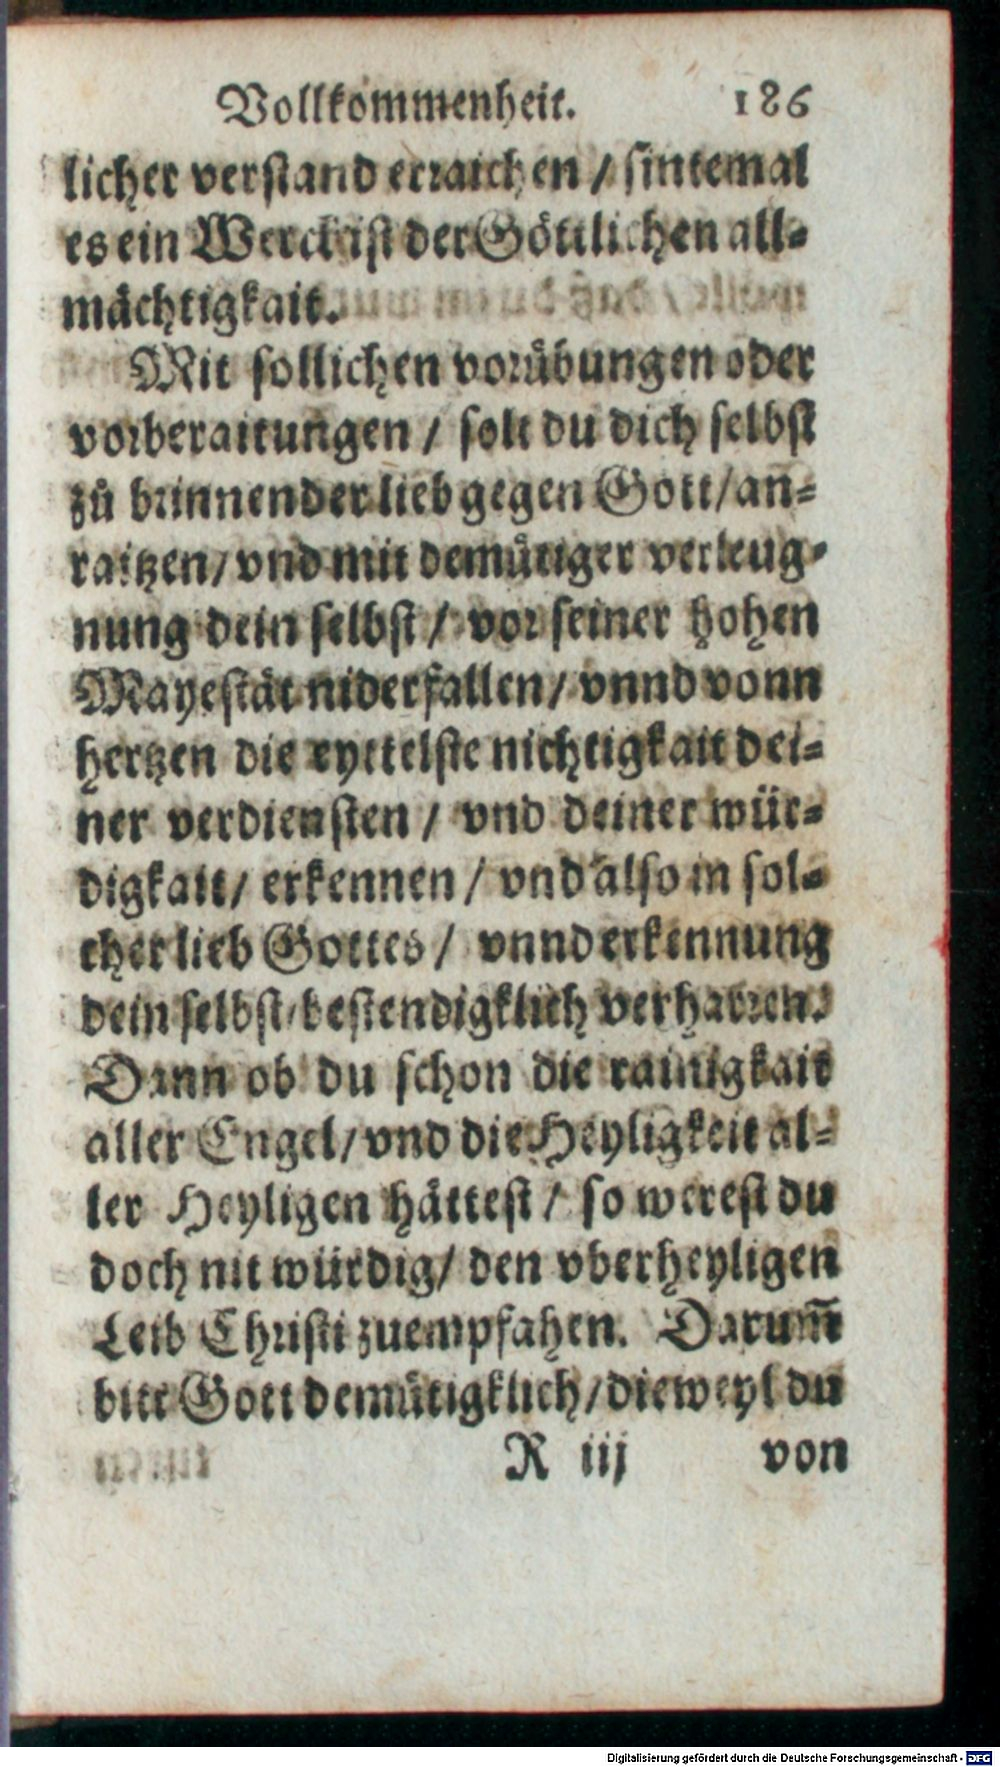 Vollkommenheit. 186
licher verstand erraichen / sintemal
es ein Werck ist der Göttlichen all-
mächtigkait.
Mit sollichen vorübungen oder
vorberaitungen / solt du dich selbst
zů brinnender lieb gegen Gott / an-
raitzen / vnd mit demütiger verleug-
nung dein selbst / vor seiner hohen
Mayestät niderfallen / vnnd vonn
hertzen die eyttelste nichtigkait dei-
ner verdiensten / vnd deiner wür-
digkait / erkennen / vnd also in sol-
cher lieb Gottes / vnnd erkennung
dein selbst / bestendigklich verharren.
Dann ob du schon die rainigkait
aller Engel / vnd die Heyligkeit al-
ler Heyligen hättest / so werest du
doch nit würdig / den vberheyligen
Leib Christi zuempfahen. Darum̃
bitt Gott demütigklich / dieweyl du
R iij von
Digitalisierung gefördert durch die Deutsche Forschungsgemeinschaft - DFG